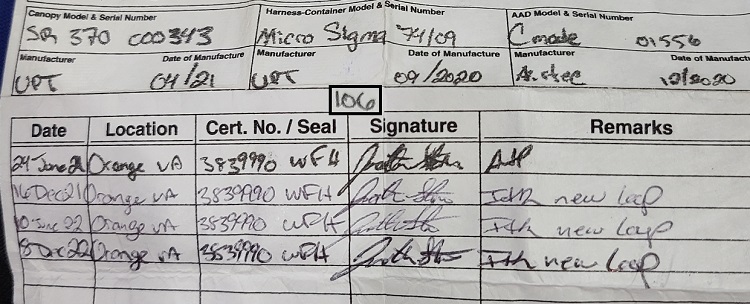 Canopy Model & Serial Number Harness-Container Model & Serial Number AAD Model & Serial Number
SR 370 C00343 Micro Sigma 74/09 C mode 01556
Manufacturer Date of Manufacture Manufacturer Date of Manufacture Manufacturer Date of Manufacture
UPT 04/21 UPT 09/2020 Airtec 12/2020
106
Date Location Cert. No. / Seal Signature Remarks
24 June 21 Orange VA 3839990 WFH A+P
16 Dec 21 Orange VA 3839990 WFH I+R new loop
10 June 22 Orange VA 3839990 WFH I+R new loop
8 Dec 22 Orange VA 3839990 WFH I+R new loop